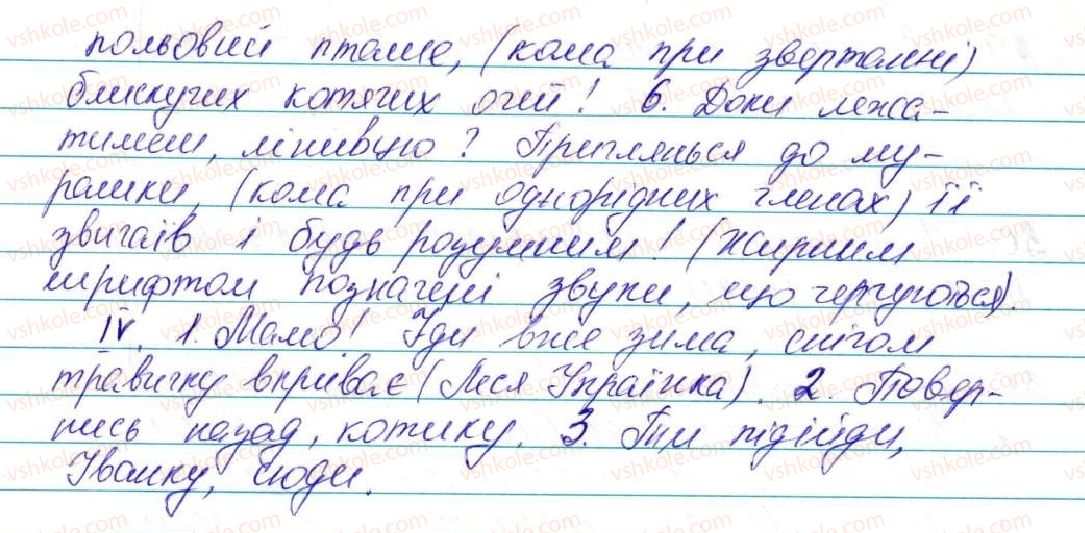 польовий пташе, (кома при звертанні)
блискучих котячих очей! 6. Доки лежа-
тимеш, лінивцю? Приглянься до му-
рашки, (кома при однорідних членах) її
звичаїв і будь розумним! (Жирним
шрифтом позначені звуки, що чергуються).
IV. 1. Мамо! Іди вже зима, снігом
травичку вкриває (Леся Українка). 2. Повер-
нись назад, котику. 3. Ти підійди,
Іванку, сюди.